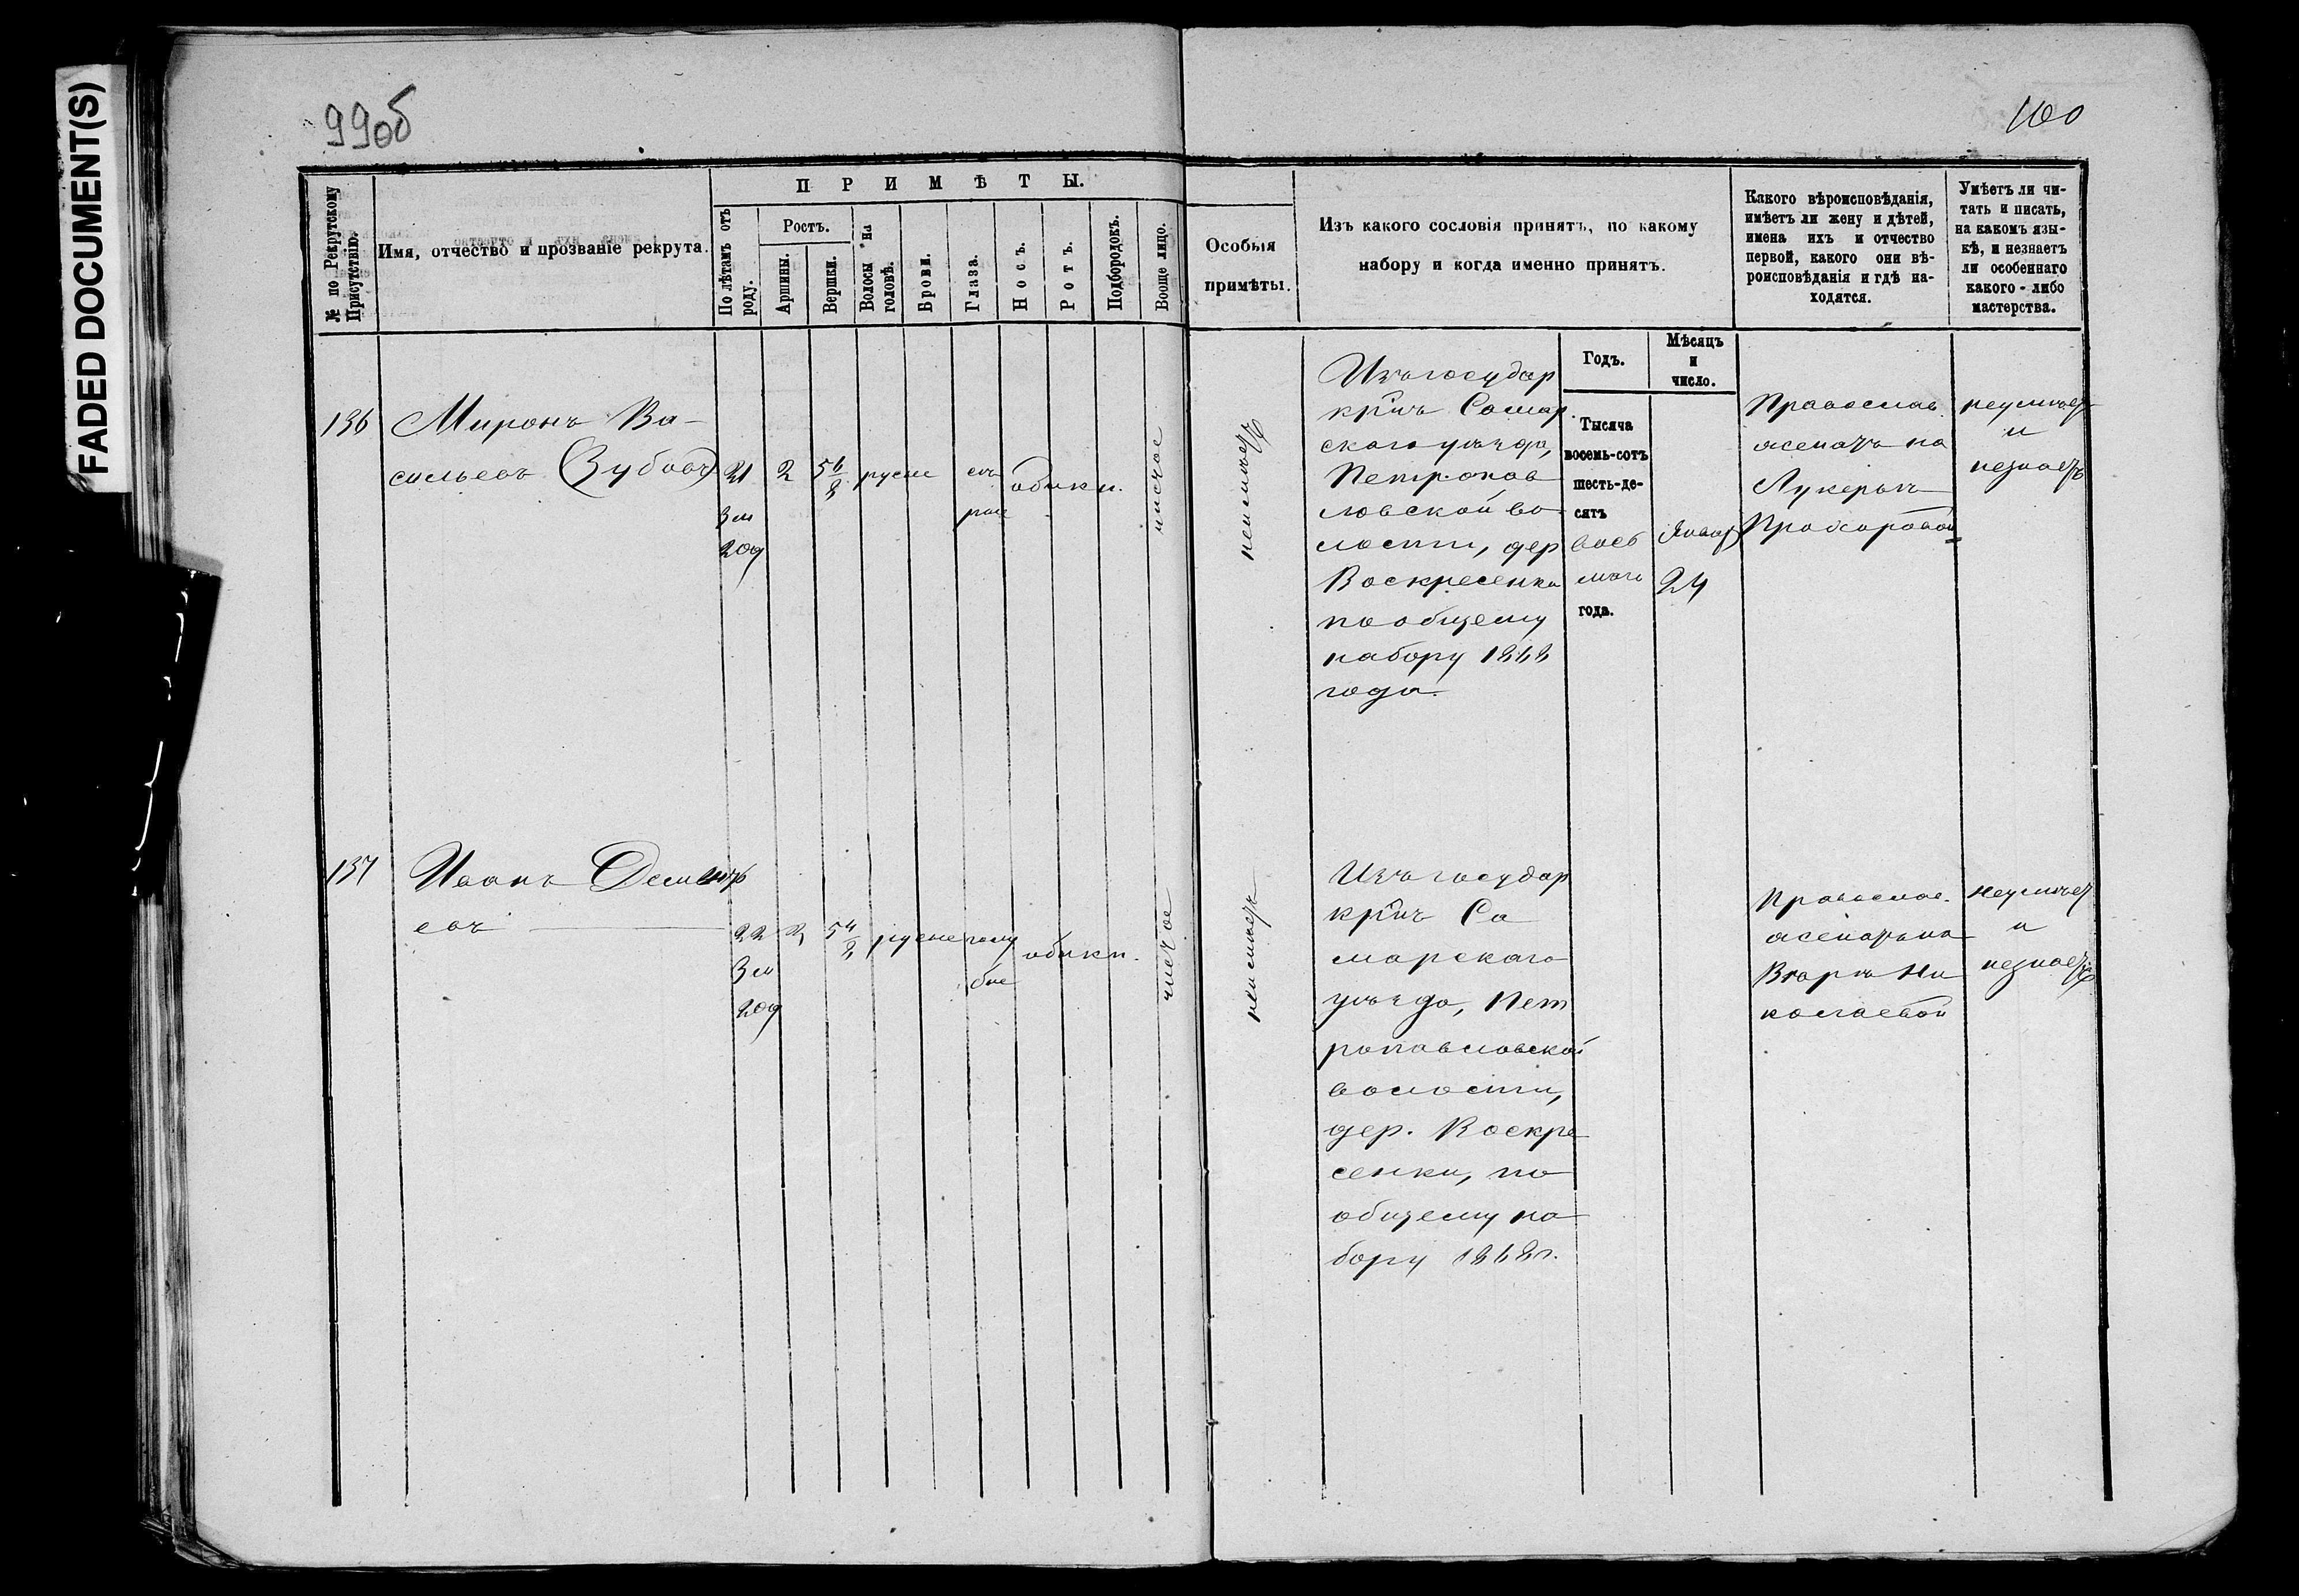 FADED DOCUMENT(S)
99об
100
№ по Рекрутскому
Присутствію.
Имя, отчество и прозваніе рекрута.
ПРИМѢТЫ.
По лѣтамъ отъ
роду.
Ростъ.
Аршины.
Вершки.
Волосы на
головѣ.
Брови.
Глаза.
Носъ.
Ротъ.
Подбородокъ.
Вооще лицо.
Особыя
примѣты.
Изъ какого сословія принятъ, по какому
набору и когда именно принятъ.
Какого вѣроисповѣданія,
имѣетъ ли жену и дѣтей,
имена ихъ и отчество
первой, какого они вѣ-
роисповѣданія и гдѣ на-
ходятся.
Умѣетъ ли чи-
тать и писать,
на какомъ язы-
кѣ, и незнаетъ
ли особеннаго
какого-либо
мастерства.
Годъ.
Мѣсяцъ
и
число.
136
Миронъ Ва-
сильевъ (Зубовъ)
21
3 м
год
2
5 6/8
русые
сѣ
рые
обыкн.
чистое
неимѣетъ
Изъ государ
кр̃нъ Самар
скаго уѣзда,
Петропав
ловской во
лости, дер
Воскресенки
по общему
набору 1868
года.
Тысяча
восемь-сотъ
шесть-де-
сятъ
вось
маго
года.
Январ
24
Православ.
женатъ на
Лукерьѣ
Прохоровой
неумѣет
и
незнаетъ
137
Иванъ Дементь
евъ
22
3 м
год
2
5 4/8
русые
голу
бые
обыкн.
чистое
неимѣетъ
Изъ государ
кр̃нъ Са
марскаго
уѣзда, Пет
ропавловской
волости,
дер. Воскре
сенки, по
общему на
бору 1868 г.
Православ.
женатъ на
Варѣ Ни
колаевой
неумѣет
и
незнаетъ